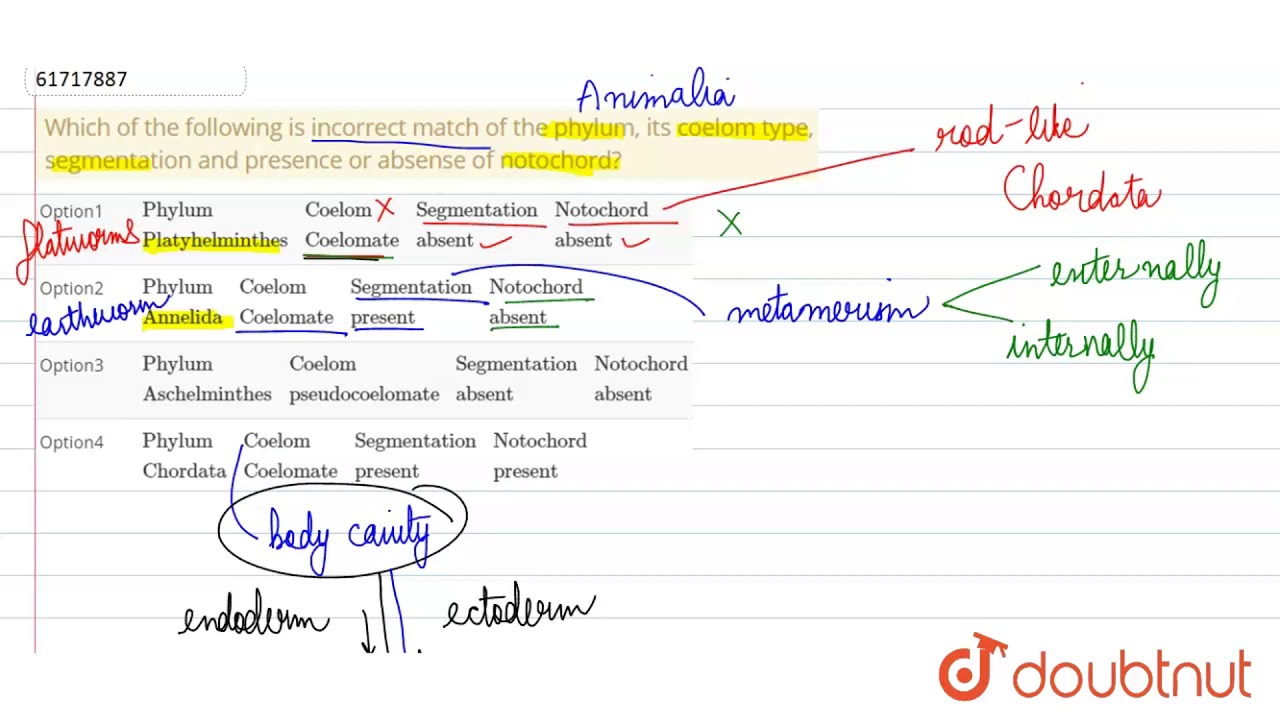 61717887
Animalia
Which of the following is incorrect match of the phylum, its coelom type,
segmentation and presence or absense of notochord?
rod-like
Chordata
Option1 Phylum Coelom X Segmentation Notochord
flatworms Platyhelminthes Coelomate absent ✓ absent ✓ X
Option2 Phylum Coelom Segmentation Notochord
earthworm Annelida Coelomate present absent
metamerism
enternally
internally
Option3 Phylum Coelom Segmentation Notochord
Aschelminthes pseudocoelomate absent absent
Option4 Phylum Coelom Segmentation Notochord
Chordata Coelomate present present
body cavity
endoderm ectoderm
doubtnut